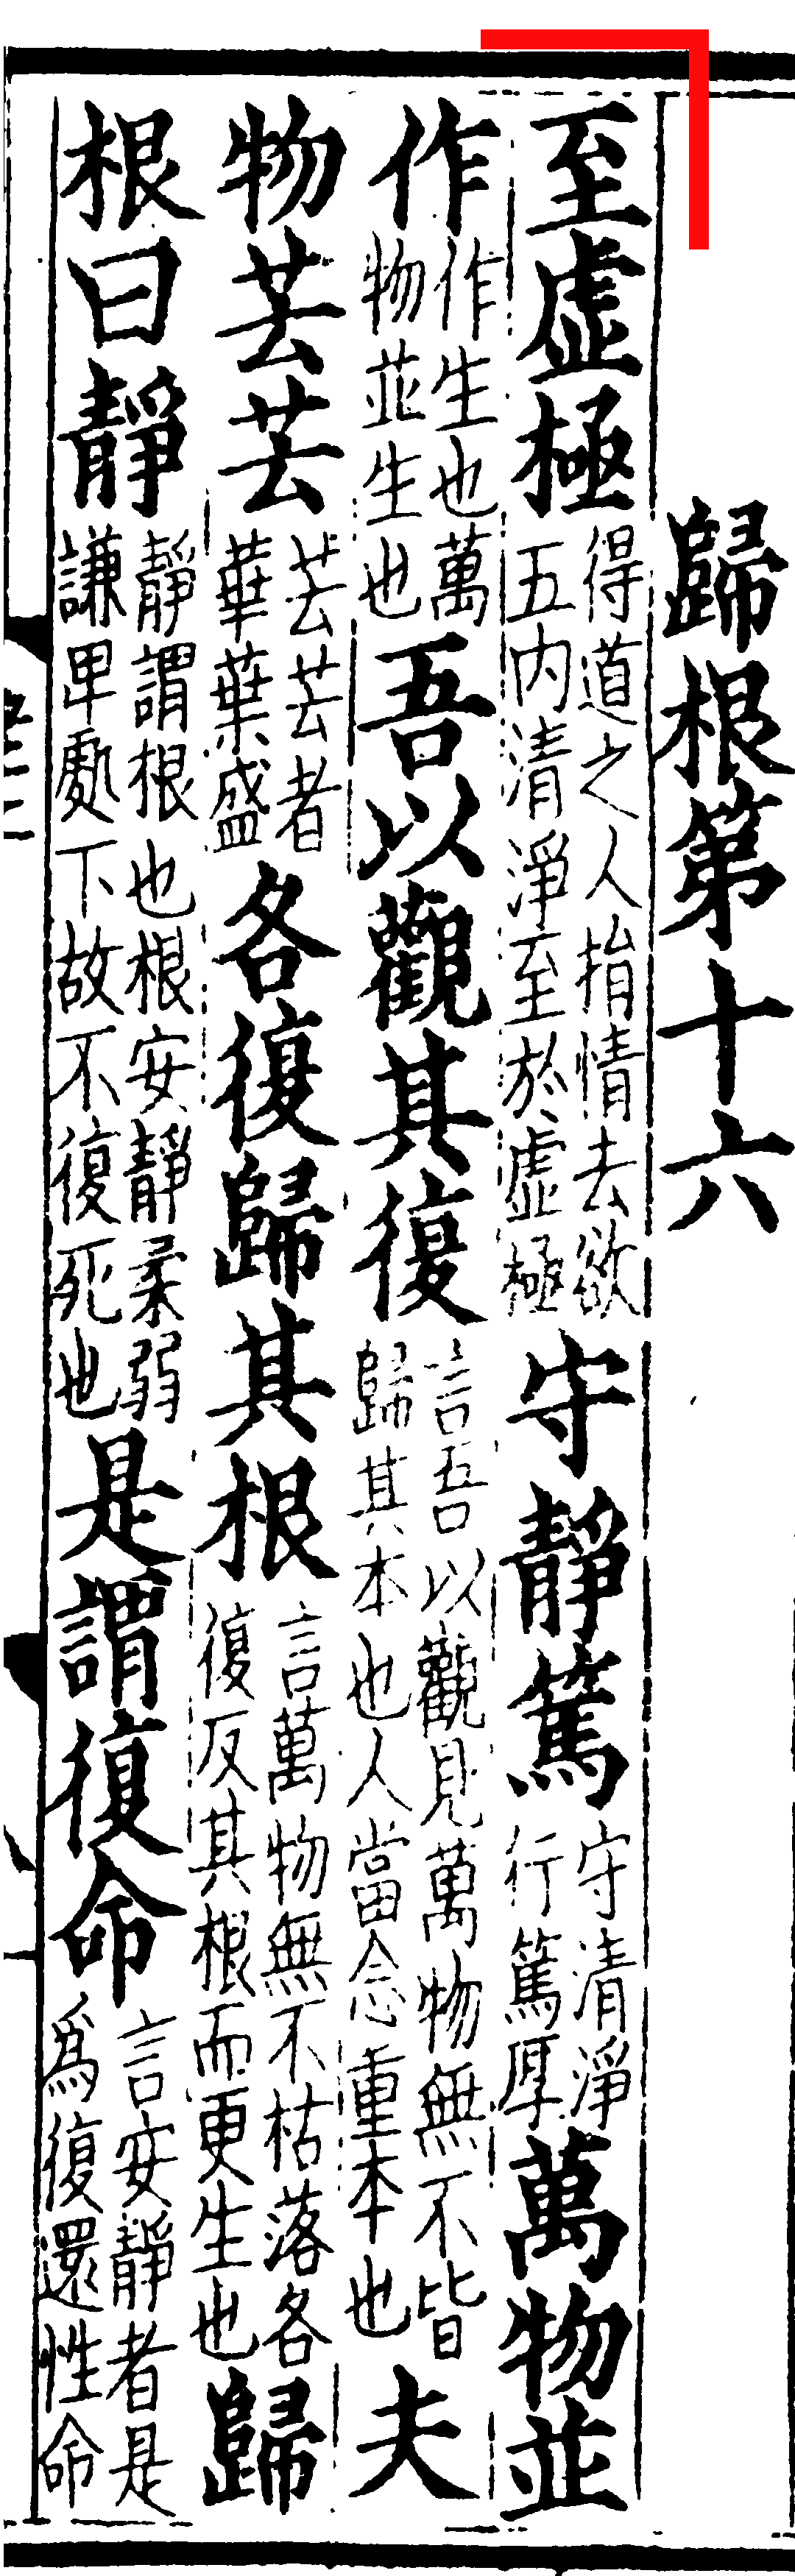 歸根第十六
至虛極得道之人捐情去欲五內清淨至於虛極守靜篤守清淨行篤厚萬物並
作作生也萬物並生也吾以觀其復言吾以觀見萬物無不皆歸其本也人當念重本也夫
物芸芸芸芸者華葉盛各復歸其根言萬物無不枯落各復反其根而更生也歸
根曰靜靜謂根也根安靜柔弱謙卑處下故不復死也是謂復命言安靜者是爲復還性命